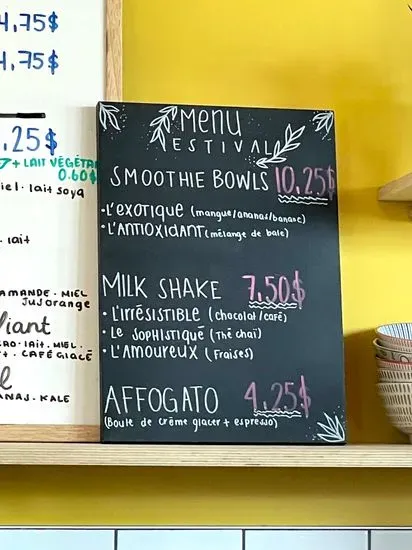 4,75$
4,75$
.25$
+ LAIT VÉGÉTA
0.60$
iel · lait soya
· lait
AMANDE · MIEL
JUS ORANGE
· LAIT · MIEL ·
· CAFÉ GLACÉ
ANAS · KALE
MENU
ESTIVAL
SMOOTHIE BOWLS 10,25$
• L'EXOTIQUE (mangue/ananas/banane)
• L'ANTIOXIDANT (mélange de baie)
MILK SHAKE 7,50$
• L'IRRÉSISTIBLE (chocolat/café)
• LE SOPHISTIQUÉ (Thé chaï)
• L'AMOUREUX (Fraises)
AFFOGATO 4,25$
(Boule de crème glacer + espresso)